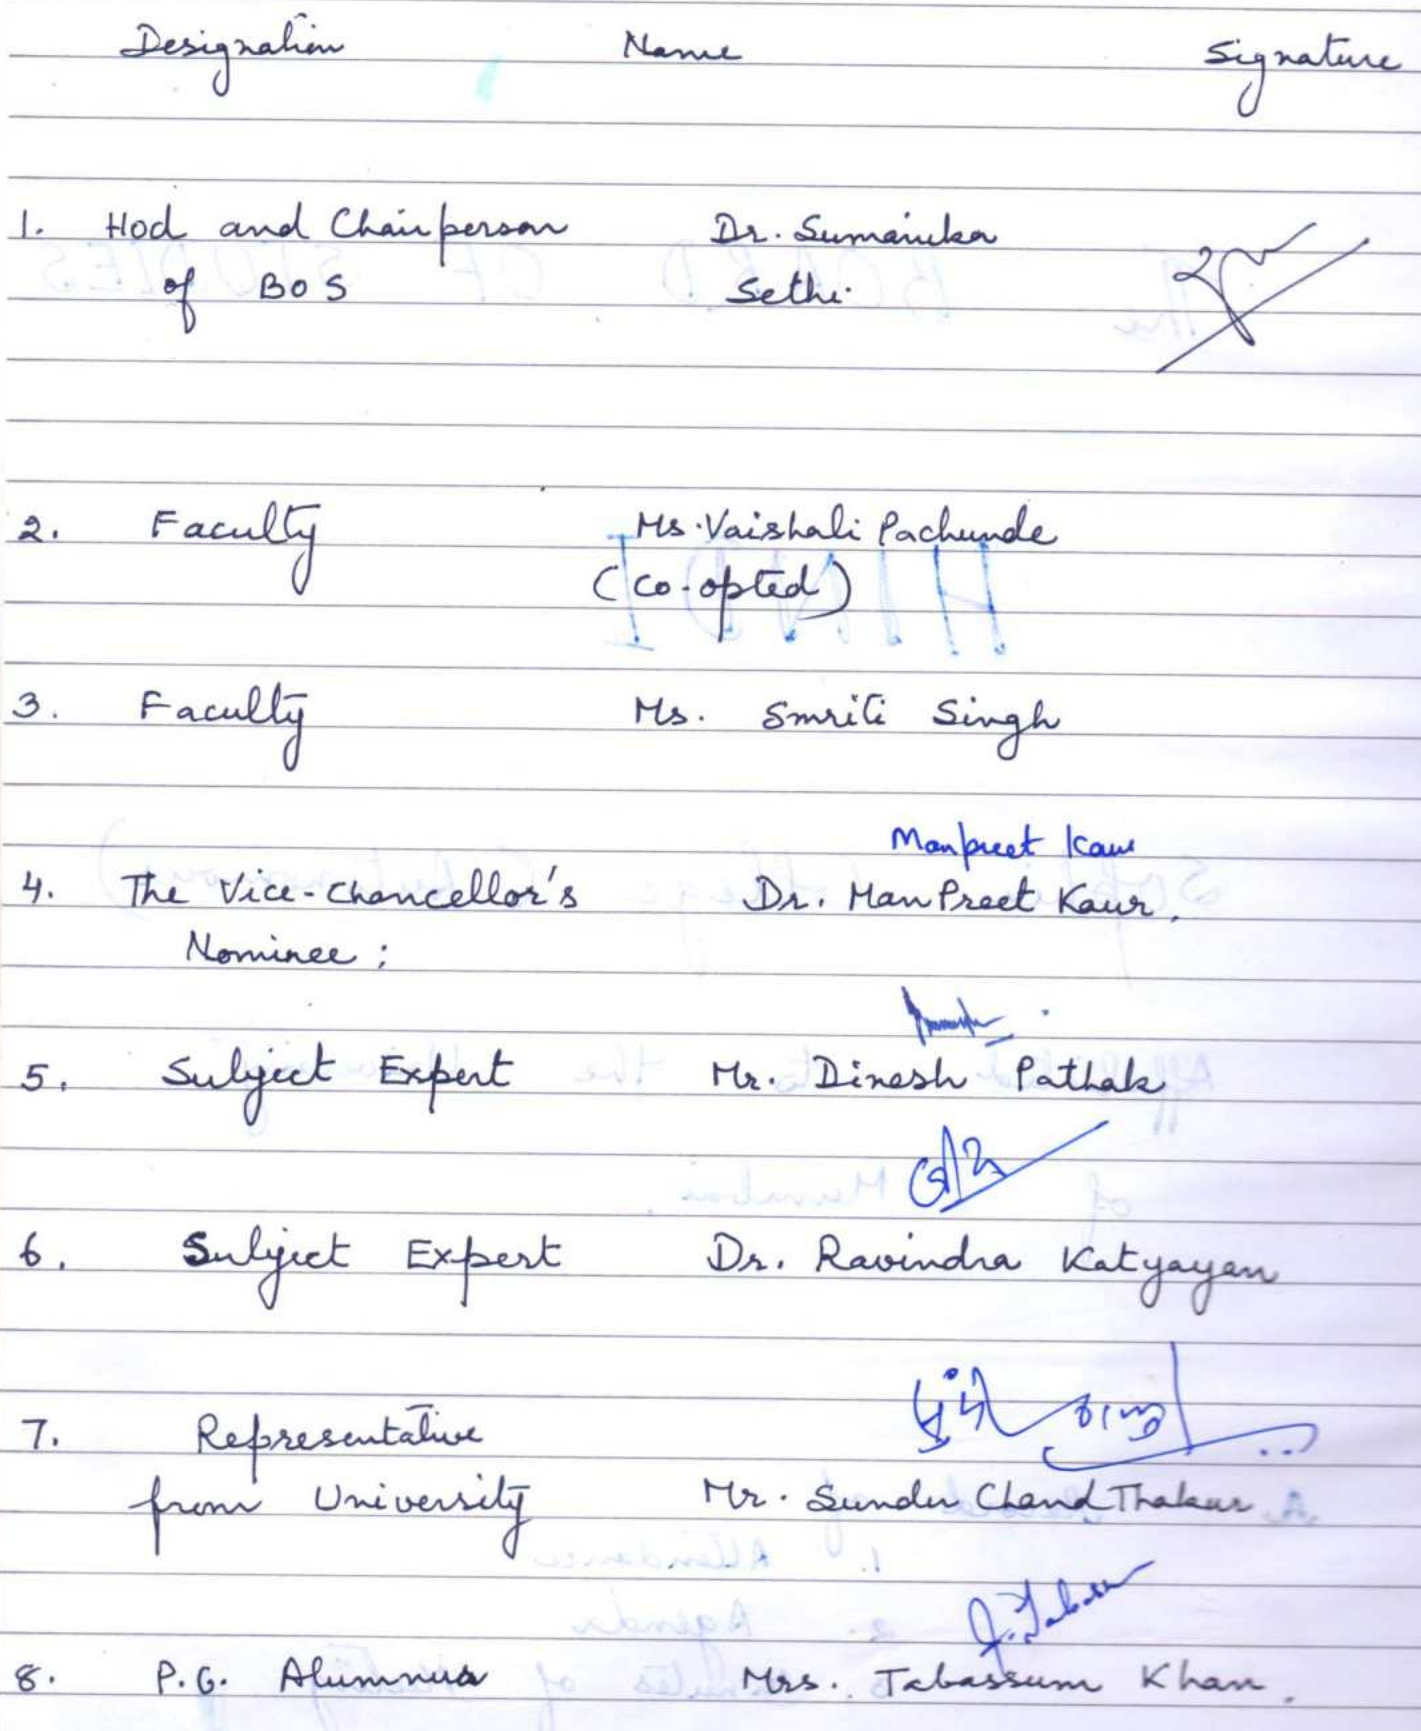 Designation Name Signature
1. Hod and Chairperson Dr. Sumanika
of BOS Sethi.
2. Faculty Ms. Vaishali Pachunde
(co-opted)
3. Faculty Ms. Smriti Singh
Manpreet Kaur
4. The Vice-Chancellor's Dr. ManPreet Kaur.
Nominee ;
5. Subject Expert Mr. Dinesh Pathak
6. Subject Expert Dr. Ravindra Katyayan
7. Representative
from University Mr. Sunder Chand Thakur
8. P.G. Alumnus Mrs. Tabassum Khan.